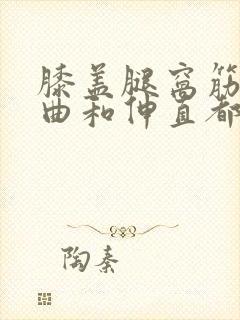 膝盖腿窝筋
曲和伸直都
陶秦